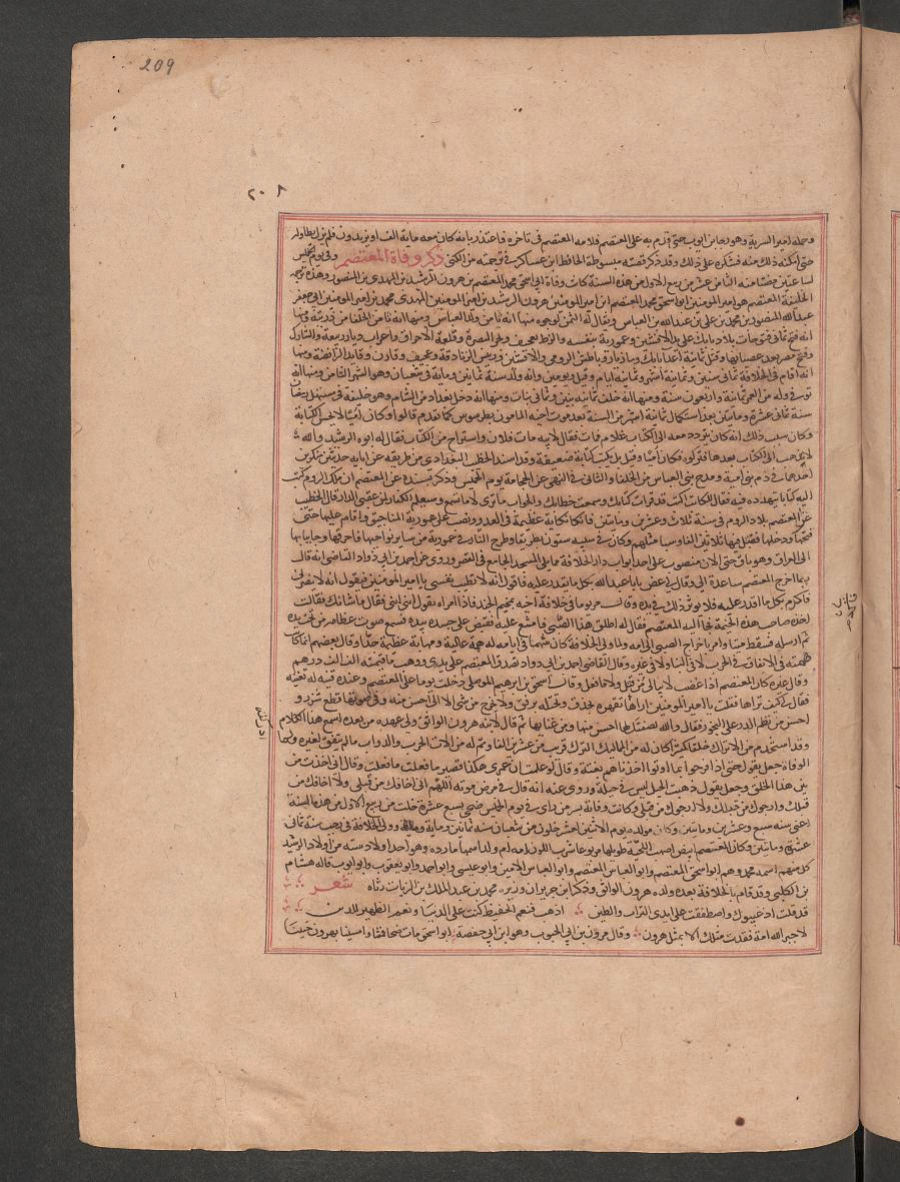 209
٢٠٨
وحمله لامير السرية وهو رجا بن ايوب حتى قدم به على المعتصم فلامه المعتصم في تاخره فاعتذر بانه كان معه ماية الف او يزيدون فلم يزل يطاوله
حتى امكنه ذلك منه فشكره على ذلك وقد ذكر قصته مبسوطة الحافظ ابن عساكر في ترجمته من الكنى ذكر وفاة المعتصم وفي يوم الخميس
لساعتين مضتا منه الثامن عشر من ربيع الاول من هذه السنة كانت وفاة ابي اسحق محمد المعتصم بن هرون الرشيد بن المهدي بن المنصور وهذه ترجمة
الخليفة المعتصم هو امير المومنين ابو اسحق محمد المعتصم ابن امير المومنين هرون الرشيد بن امير المومنين المهدي محمد بن امير المومنين ابي جعفر
عبد الله المنصور بن محمد بن علي بن عبد الله بن العباس ويقال له الثمن لوجوه منها انه ثامن ولد العباس ومنها انه ثامن الخلفا من ذريته ومنها
انه فتح ثماني فتوحات بلاد بابك على يد الافشين وعمورية بنفسه والزط بعجيف وبحر البصرة وقلعة الاحراف واعراب ديار ربيعة والشارك
وفتح مصر بعد عصيانها وقتل ثمانية اعداء بابك ومازيار وباطس الرومي والافشين وريس الزنادقة وعجيف وقارن وقايد الرافضة ومنها
انه اقام في الخلافة ثماني سنين وثمانية اشهر وثمانية ايام وقيل ويومين وانه ولد سنة ثمانين وماية في شعبان وهو الشهر الثامن ومنها انه
توفي وله من العمر ثمانية واربعون سنة ومنها انه خلف ثمانية بنين وثماني بنات ومنها انه دخل بغداد من الشام وهو خليفة في مستهل رمضان
سنة ثماني عشرة وماتين بعد استكمال ثمانية اشهر من السنة بعد موت اخيه المامون بطرسوس كما تقدم قالوا وكان اميا لا يحسن الكتابة
وكان سبب ذلك انه كان يتردد معه الى الكتاب غلام فمات فقال له ابوه ما فعل غلامك فقال مات واستراح من الكتاب فقال له ابوه الرشيد والله
لا تذهب الى الكتاب بعدها فتركوه فكان اميا وقيل بل يكتب كتابة ضعيفة وقد اسند الخطيب البغدادي من طريقه عن ابايه حديثين منكرين
احدهما في ذم بني امية ومدح بني العباس من الخلفا والثاني في النهي عن الحجامة يوم الخميس وذكر بسنده عن المعتصم ان ملك الروم كتب
اليه كتابا يتهدده فيه فقال للكاتب اكتب قد قرات كتابك وسمعت خطابك والجواب ما ترى لا ما تسمع وسيعلم الكفار لمن عقبى الدار قال الخطيب
غزا المعتصم بلاد الروم في سنة ثلاث وعشرين وماتين فانكا نكاية عظيمة في العدو ونصب على عمورية المناجيق واقام عليها حتى
فتحها ودخلها فقتل فيها ثلاثين الفا وسبا مثلهم وكان في سبيه ستون بطريقا وطرح النار في عمورية من ساير نواحيها فاحرقها وجا ببابها
الى العراق وهو باق حتى الان منصوب على احد ابواب دار الخلافة مما يلي المسجد الجامع في القصر وروى عن احمد بن ابي دواد القاضي انه قال
ربما اخرج المعتصم ساعده الي وقال لي عض يا با عبد الله بكل ما تقدر عليه فاقول انه لا تطيب نفسي يا امير المومنين فيقول انه لا يضرني
فاكدم بكل ما اقدر عليه فلا يوثر ذلك في يده وقال مر يوما في خلافة اخيه بمخيم الجند فاذا امراة تقول ابني ابني فقال ما شانك فقالت
اخذه صاحب هذه الخيمة فجا اليه المعتصم فقال له اطلق هذا الصبي فامتنع عليه فقبض على جسده بيده فسمع صوت عظامه من تحت يده
ثم ارسله فسقط ميتا وامر باخراج الصبي الى امه ولما ولي الخلافة كان شهما في ايامه له همة عالية ومهابة عظيمة جدا وقال بعضهم انما كانت
همته في الانفاق في الحرب لا في البنا ولا في غيره وقال القاضي احمد بن ابي دواد تصدق المعتصم على يدي ووهب ما قيمته الف الف درهم
وقال غيره كان المعتصم اذا غضب لا يبالي من قتل ولا ما فعل وقال اسحق بن ابراهيم الموصلي دخلت يوما على المعتصم وعنده قينة له تغنيه
فقال لي كيف تراها فقلت يا امير المومنين اراها تقهره بحذق وتختله برفق ولا تخرج من شي الا الى احسن منه وفي صوتها قطع شذور
احسن من نظم الدر على النحور فقال والله لصفتك لها احسن منها ومن غنايها ثم قال لابنه هرون الواثق ولي عهده من بعده اسمع هذا الكلام
وقد استخدم من الاتراك خلقا كثيرا كان له من المماليك الترك قريب من عشرين الفا وتم له من الات الحرب والدواب ما لم يتفق لغيره ولما
الوفاة جعل يقول حتى اذا فرحوا بما اوتوا اخذناهم بغتة وقال لو علمت ان عمري هكذا قصير ما فعلت ما فعلت وقال اني اخذت من
بين هذا الخلق وجعل يقول ذهبت الحيل ليس في حيلة وروي عنه انه قال في مرض موته اللهم اني اخافك من قبلي ولا اخافك من
قبلك وارجوك من قبلك ولا ارجوك من قبلي وكانت وفاته بسر من راى في يوم الخميس ضحى لسبع عشرة خلت من ربيع الاول من هذه السنة
اعني سنة سبع وعشرين وماتين وكان مولده يوم الاثنين لعشر خلون من شعبان سنة ثمانين وماية وولي الخلافة في رجب سنة ثماني
عشرة وماتين وكان المعتصم ابيض اصهب اللحية طويلها مربوعا مشرب اللون امه ام ولد اسمها مارده وهو احد اولاد ستة من اولاد الرشيد
كل منهم اسمه محمد وهم ابو اسحق المعتصم وابو العباس الامين وابو عيسى وابو احمد وابو يعقوب وابو ايوب قاله هشام
بن الكلبي وقد قام بالخلافة بعده ولده هرون الواثق وذكر ابن جرير ان وزيره محمد بن عبد الملك بن الزيات رثاه شعر
قد قلت اذ غيبوك واصطفقت عليك ايدي التراب والطين اذهب فنعم الحفيظ كنت على الدنيا ونعم الظهير للدين
لا جبر الله امة فقدت مثلك الا بمثل هرون وقال مرون بن ابي الجنوب وهو ابن ابي حفصة ابو اسحق مات ضحا فمتنا وامسينا بهرون حيينا